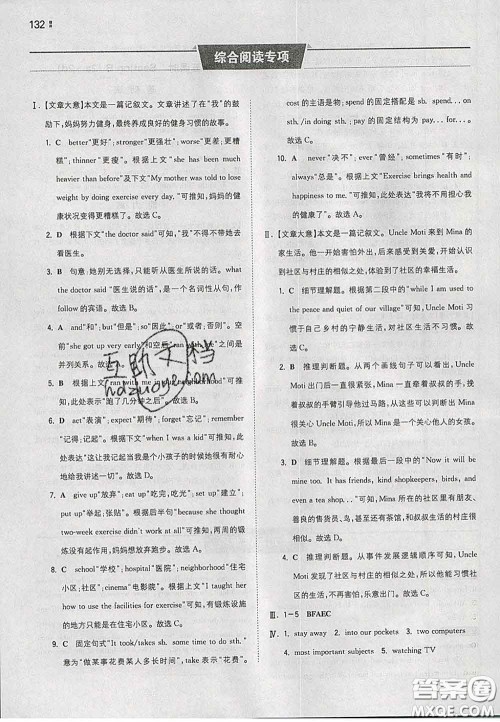 132
综合阅读专项
Ⅰ. 【文章大意】本文是一篇记叙文。文章讲述了在“我”的鼓
励下,妈妈努力健身,最终养成好的健身习惯的故事。
1. C better“更好”; stronger“更强壮”; worse“更差;更糟
糕”; thinner“更瘦”。根据上文“she has been much
heavier than before”及下文“My mother was told to lose
weight by doing exercise every day.”可推知,妈妈的健
康状况变得更糟糕了。故选 C。
2. B 根据下文“the doctor said”可知,“我”不得不带她去看
医生。故选 B。
3. B 句意:她感到很难过,只能听从医生所说的话。what
the doctor said “医生说的话”,是一个名词性从句,作
follow 的宾语。故选 B。
4. A and“和”; but“但是”; so“因此”; or“或者;否则”。空
前“she got up very early”和空后
并列关系。故选 A。
5. D 根据上文“ran with me in
知,此处表达“跑了几分钟之后”。故选 D。
6. D act“表演”; expect“期待”; forget“忘记”; remember
“记得;记起”。根据下文“when I was a kid”可推知,此
处表达“这让我记起当我是个小孩子的时候她很有耐心
地给我讲述一切”。故选 D。
7. A give up“放弃”; eat up“吃完,吃光”; set up“建立”;
put up“张贴”。根据空后部分“because she thought
two-week exercise didn't work at all”可推知,两周的锻
炼没有奏效,妈妈想放弃跑步。故选 A。
8. C school“学校”; hospital“医院”; neighborhood“住宅
小区;社区”; cinema“电影院”。根据上文“I taught her
how to use the facilities for exercise”可知,有锻炼设施
的地方也只能是在住宅小区。故选 C。
9. C 固定句式“It took/takes sb. some time to do sth.”
意为“做某事花费某人多长时间”,take 表示“花费”。
cost 的主语是物; spend 的固定搭配是 sb. spend...
on sth. /in doing sth. ; pay 的固定结构为 pay... for
sth.。故选 C。
10. A never “决不”; ever “曾经”; sometimes “有时”;
always“总是”。根据上文“Exercise brings health and
happiness to me.”可知,此处表达“我将不用担心我
的健康了”。故选 A。
Ⅱ. 【文章大意】本文是一篇记叙文。Uncle Moti 来到 Mina 的
家生活。他一开始害怕外出,后来亲属给予关爱,并开始意
识到社区与村庄的相似之处,体验到社区的幸福生活。
1. C 细节理解题。根据第二段中的“while I am used to
the peace and quiet of our village”可知,Uncle Moti 来
自乡村,习惯了乡村的宁静生活,对城市社区生活不习
惯。故选 C。
2. B 推理判断题。从第三段的描述可知,Uncle Moti 害
怕出门后一直紧紧抓着 Mina 的手,Mina 拿着叔叔的包,
抓着叔叔的手臂引导他过马路,从这些描述可以推知,
Mina 是一个关心他人的女孩。故选 B。
3. B 细节理解题。根据最后一段中的“Now it is really
mine too. It has friends, kind shopkeepers, birds, and
even a tea shop...”可知,Mina 生活的社区里有朋友,
善良的售货员,鸟,甚至还有茶馆,和叔叔生活的村庄很
相似。故选 B。
4. C 推理判断题。从事件发展逻辑顺序可知,Uncle
Moti 发现了社区与村庄的相似之处,所以他能习惯社区
的生活,乐意出门。故选 C。
Ⅲ. 1—5 BFAEC
Ⅳ. 1. stay away 2. into our pockets 3. two computers
4. most important subjects 5. watching TV
互助文档
hazuoye.com
答案圈
MXQE.COM